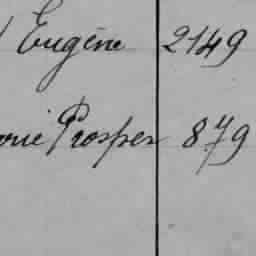 Eugène 2149
Prosper 879